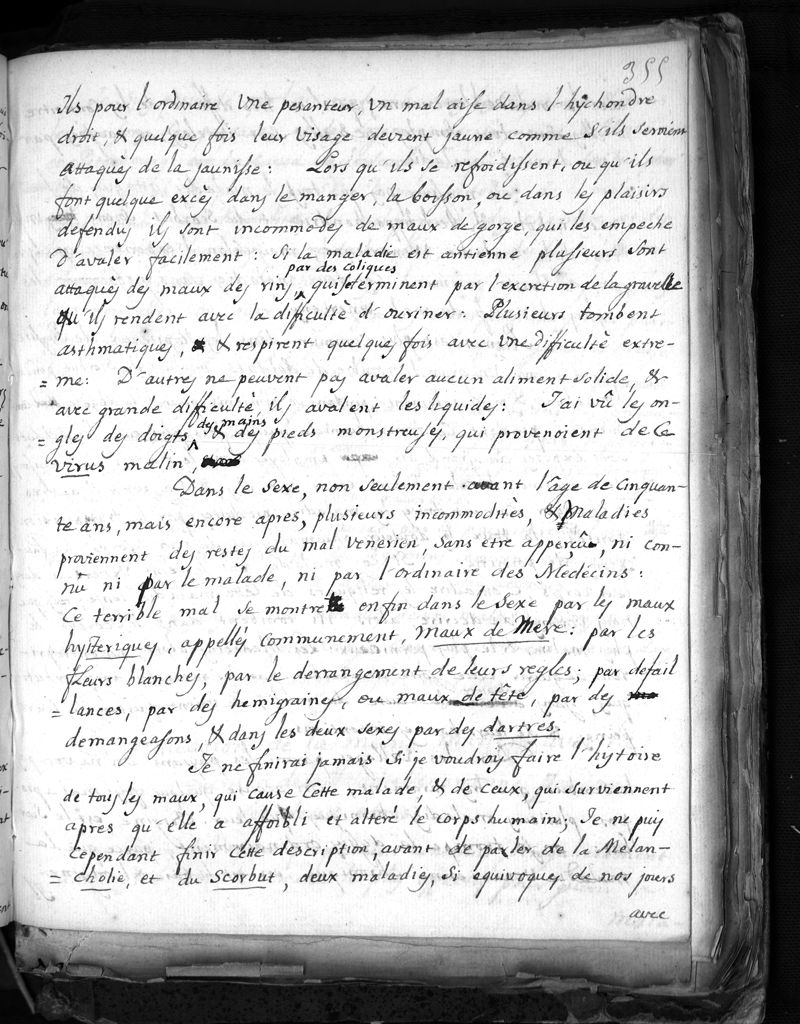 355
Ils pour l'ordinaire Une pesanteur, Un mal aise dans l'hÿchondre
droit, & quelque fois leur Visage devient jaune comme S'ils Seroient
attaqués de la jaunisse : Lors qu'ils Se refroidissent, ou qu'ils
font quelque excès dans le manger, la boisson, ou dans les plaisirs
defendus ils Sont incommodes de maux de gorge, qui les empeche
D'avaler facilement : Si la maladie est antienne plusieurs Sont
par des coliques
attaqués des maux des rins, qui se terminent par l'excretion de la gravelle
qu'ils rendent avec la difficultè d'ouriner : Plusieurs tombent
asthmatiques, & respirent quelques fois avec Une difficultè extre-
= me : D'autres ne peuvent pas avaler aucun aliment Solide, &
avec grande difficultè, ils avalent les liquides : J'ai vû les on-
des mains
= gles des doigts, & des pieds monstreuses, qui provenoient de Ce
virus malin,
Dans le Sexe, non Seulement avant l'âge de Cinquan-
te ans, mais encore apres, plusieurs incommoditès, & Maladies
proviennent des restes du mal Venerien, Sans etre apperçû, ni con-
nû ni par le malade, ni par l'ordinaire des Medècins :
Ce terrible mal Se montre enfin dans le Sexe par les maux
hysteriques, appellés Communement, Maux de Mere : par les
fleurs blanches, par le derrangement de leurs regles ; par defail
= lances, par des hemigraines, ou maux de tête, par des
demangeasons, & dans les deux Sexes par des dartres.
Je ne finirai jamais Si je voudrois faire l'hytoire
de tous les maux, qui cause Cette malade, & de Ceux, qui Surviennent
apres qu'elle a affoibli et alterè le corps humain ; Je ne puis
Cependant finir Cette description, avant de parler de la Mèlan-
= cholie, et du Scorbut, deux maladies, Si equivoques de nos jours
avec